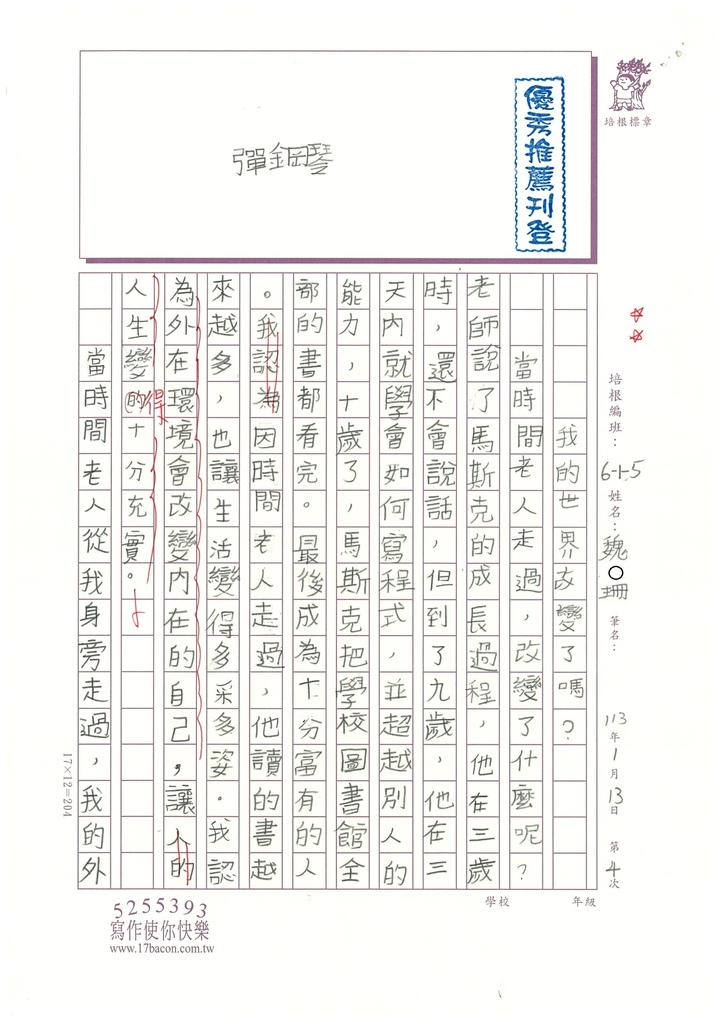 優秀推薦刊登
培根標章
彈鋼琴
培根編班：6-1-5 姓名：魏○珊 筆名：
113年1月13日 第4次
我的世界改變了嗎？
當時間老人走過，改變了什麼呢？
老師說了馬斯克的成長過程，他在三歲
時，還不會說話，但到了九歲，他在三
天內就學會如何寫程式，並超越別人的
能力，十歲了，馬斯克把學校圖書館全
部的書都看完。最後成為十分富有的人
。我認為因時間老人走過，他讀的書越
來越多，也讓生活變得多采多姿。我認
為外在環境會改變內在的自己，讓人的
人生變的得十分充實。
當時間老人從我身旁走過，我的外
17×12=204
學校 年級
5255393
寫作使你快樂
www.17bacon.com.tw